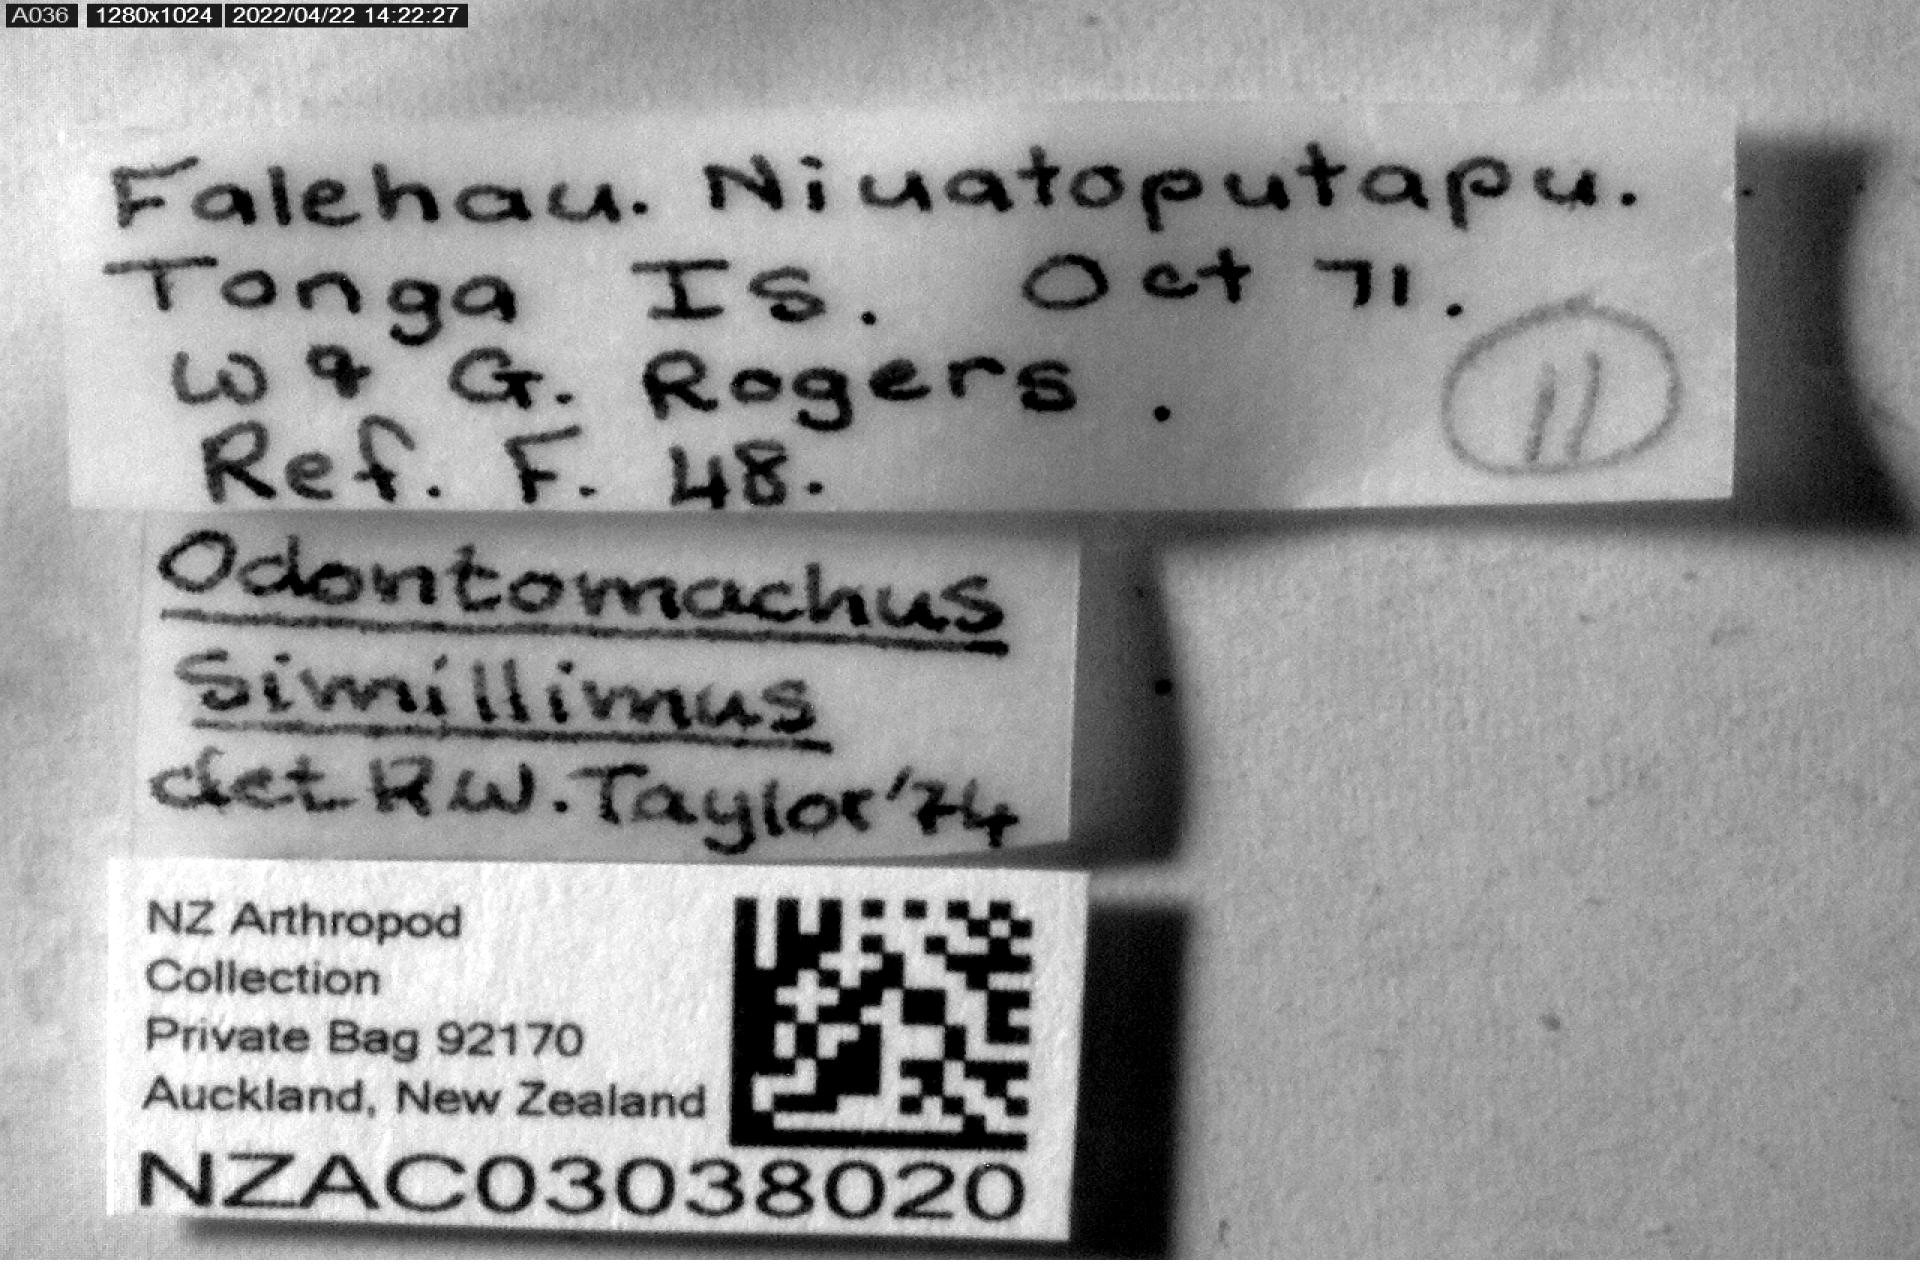 A036 1280x1024 2022/04/22 14:22:27
Falehau. Niuatoputapu.
Tonga Is. Oct 71.
W & G. Rogers.
11
Ref. F. 48.
Odontomachus
Simillimus
det R.W. Taylor '74
NZ Arthropod
Collection
Private Bag 92170
Auckland, New Zealand
NZAC03038020